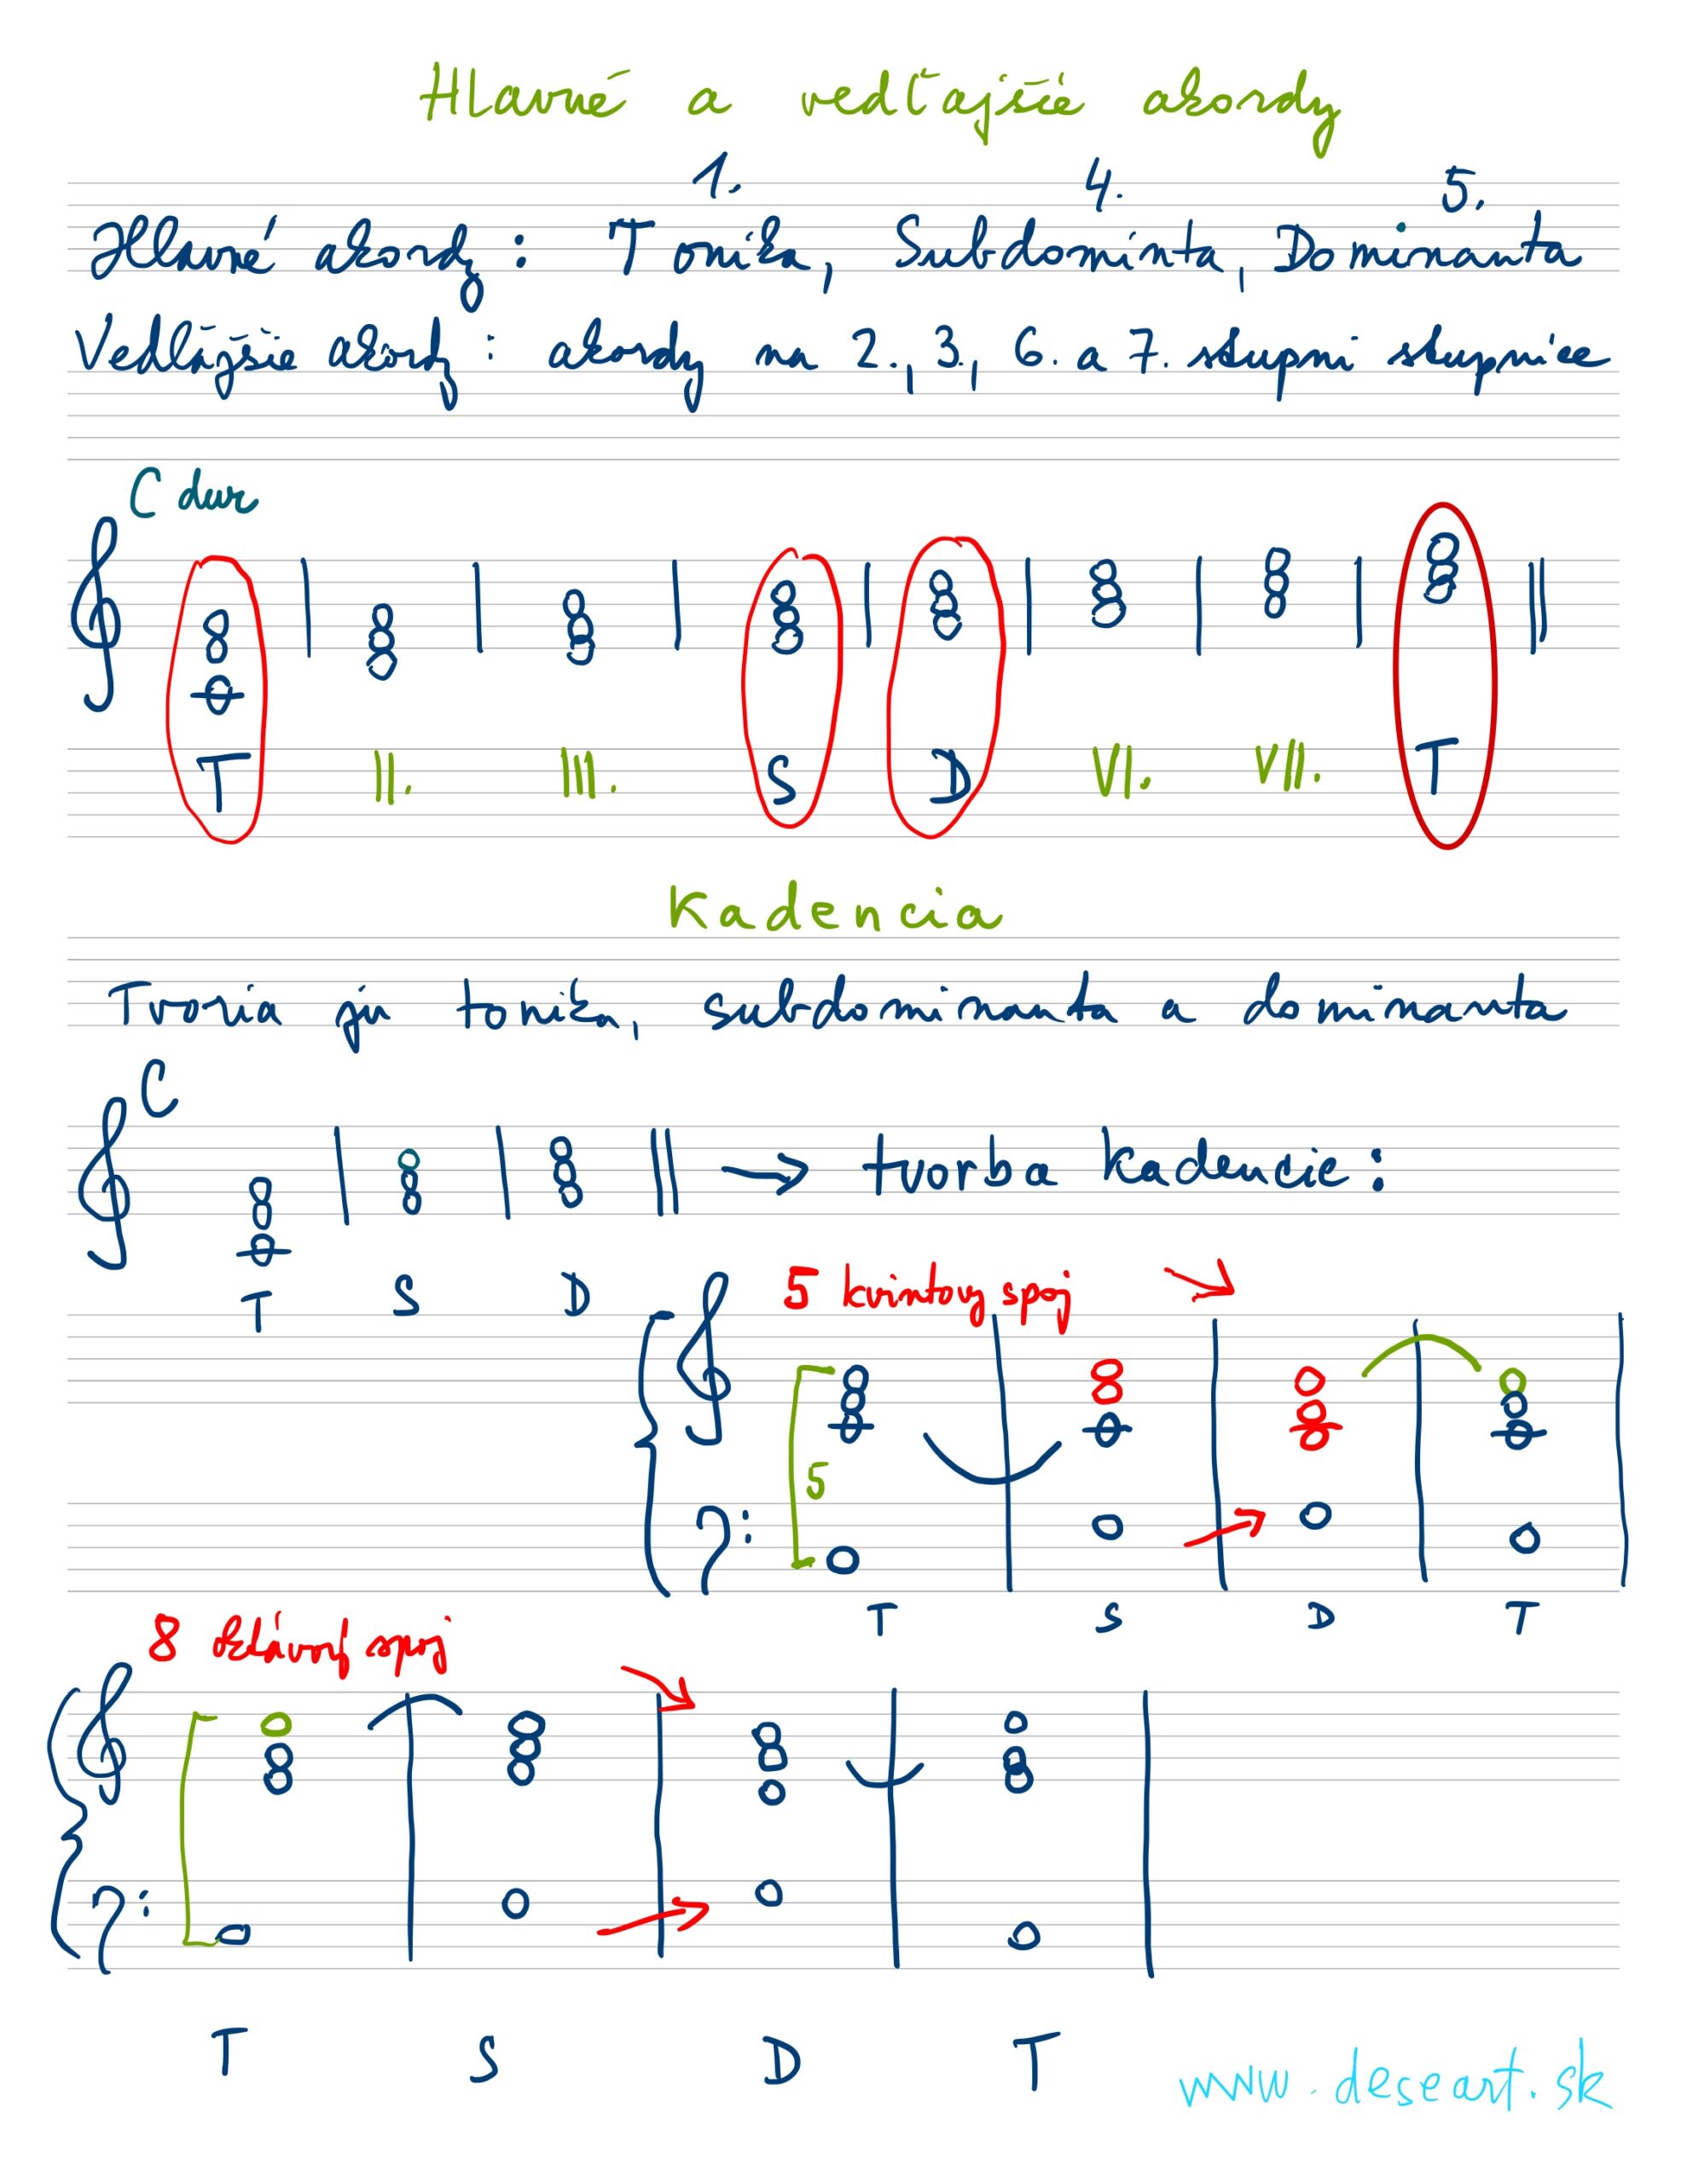 Hlavné a vedľajšie akordy
1. 4. 5.
Hlavné akordy: Tonika, Subdominta, Dominanta
Vedľajšie akordy: akordy na 2., 3., 6. a 7. stupni stupnice
C dur
T II. III. S D VI. VII. T
Kadencia
Tvoria ju tonika, subdominanta a dominanta
C
→ tvorba kadencie:
T S D
5 kvintový spoj
5
T S D T
8 oktávový spoj
T S D T
www.deseart.sk